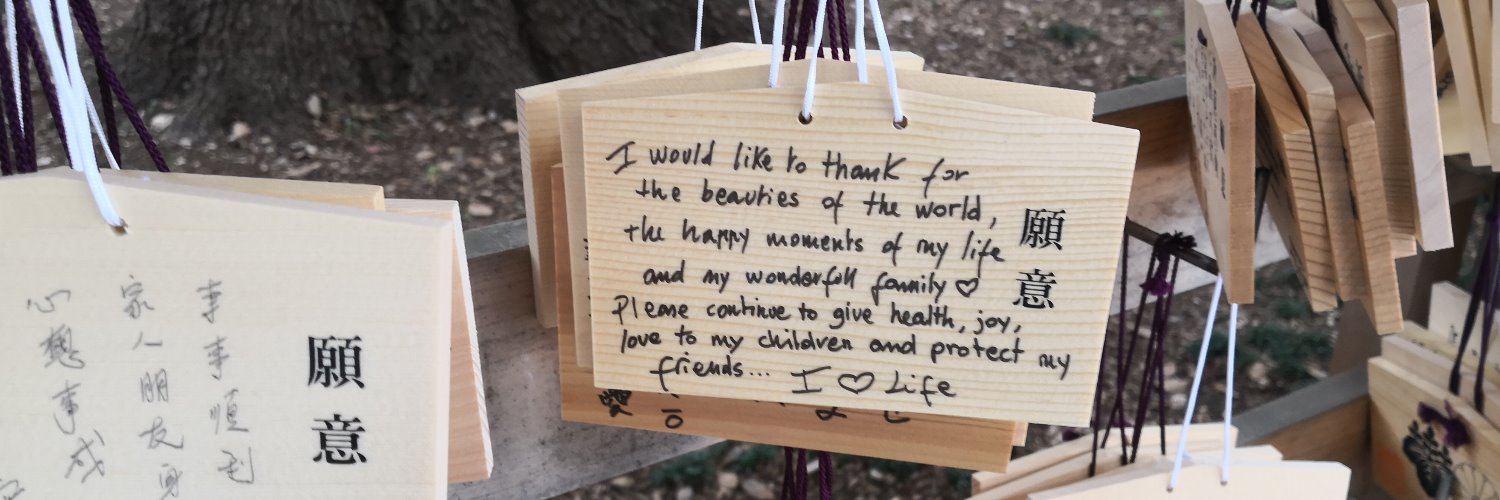 願意
事事順利
家人朋友身
心想事成
I would like to thank for
the beauties of the world,
the happy moments of my life
and my wonderfull family ♡
Please continue to give health, joy,
love to my children and protect my
friends... I ♡ Life
願意